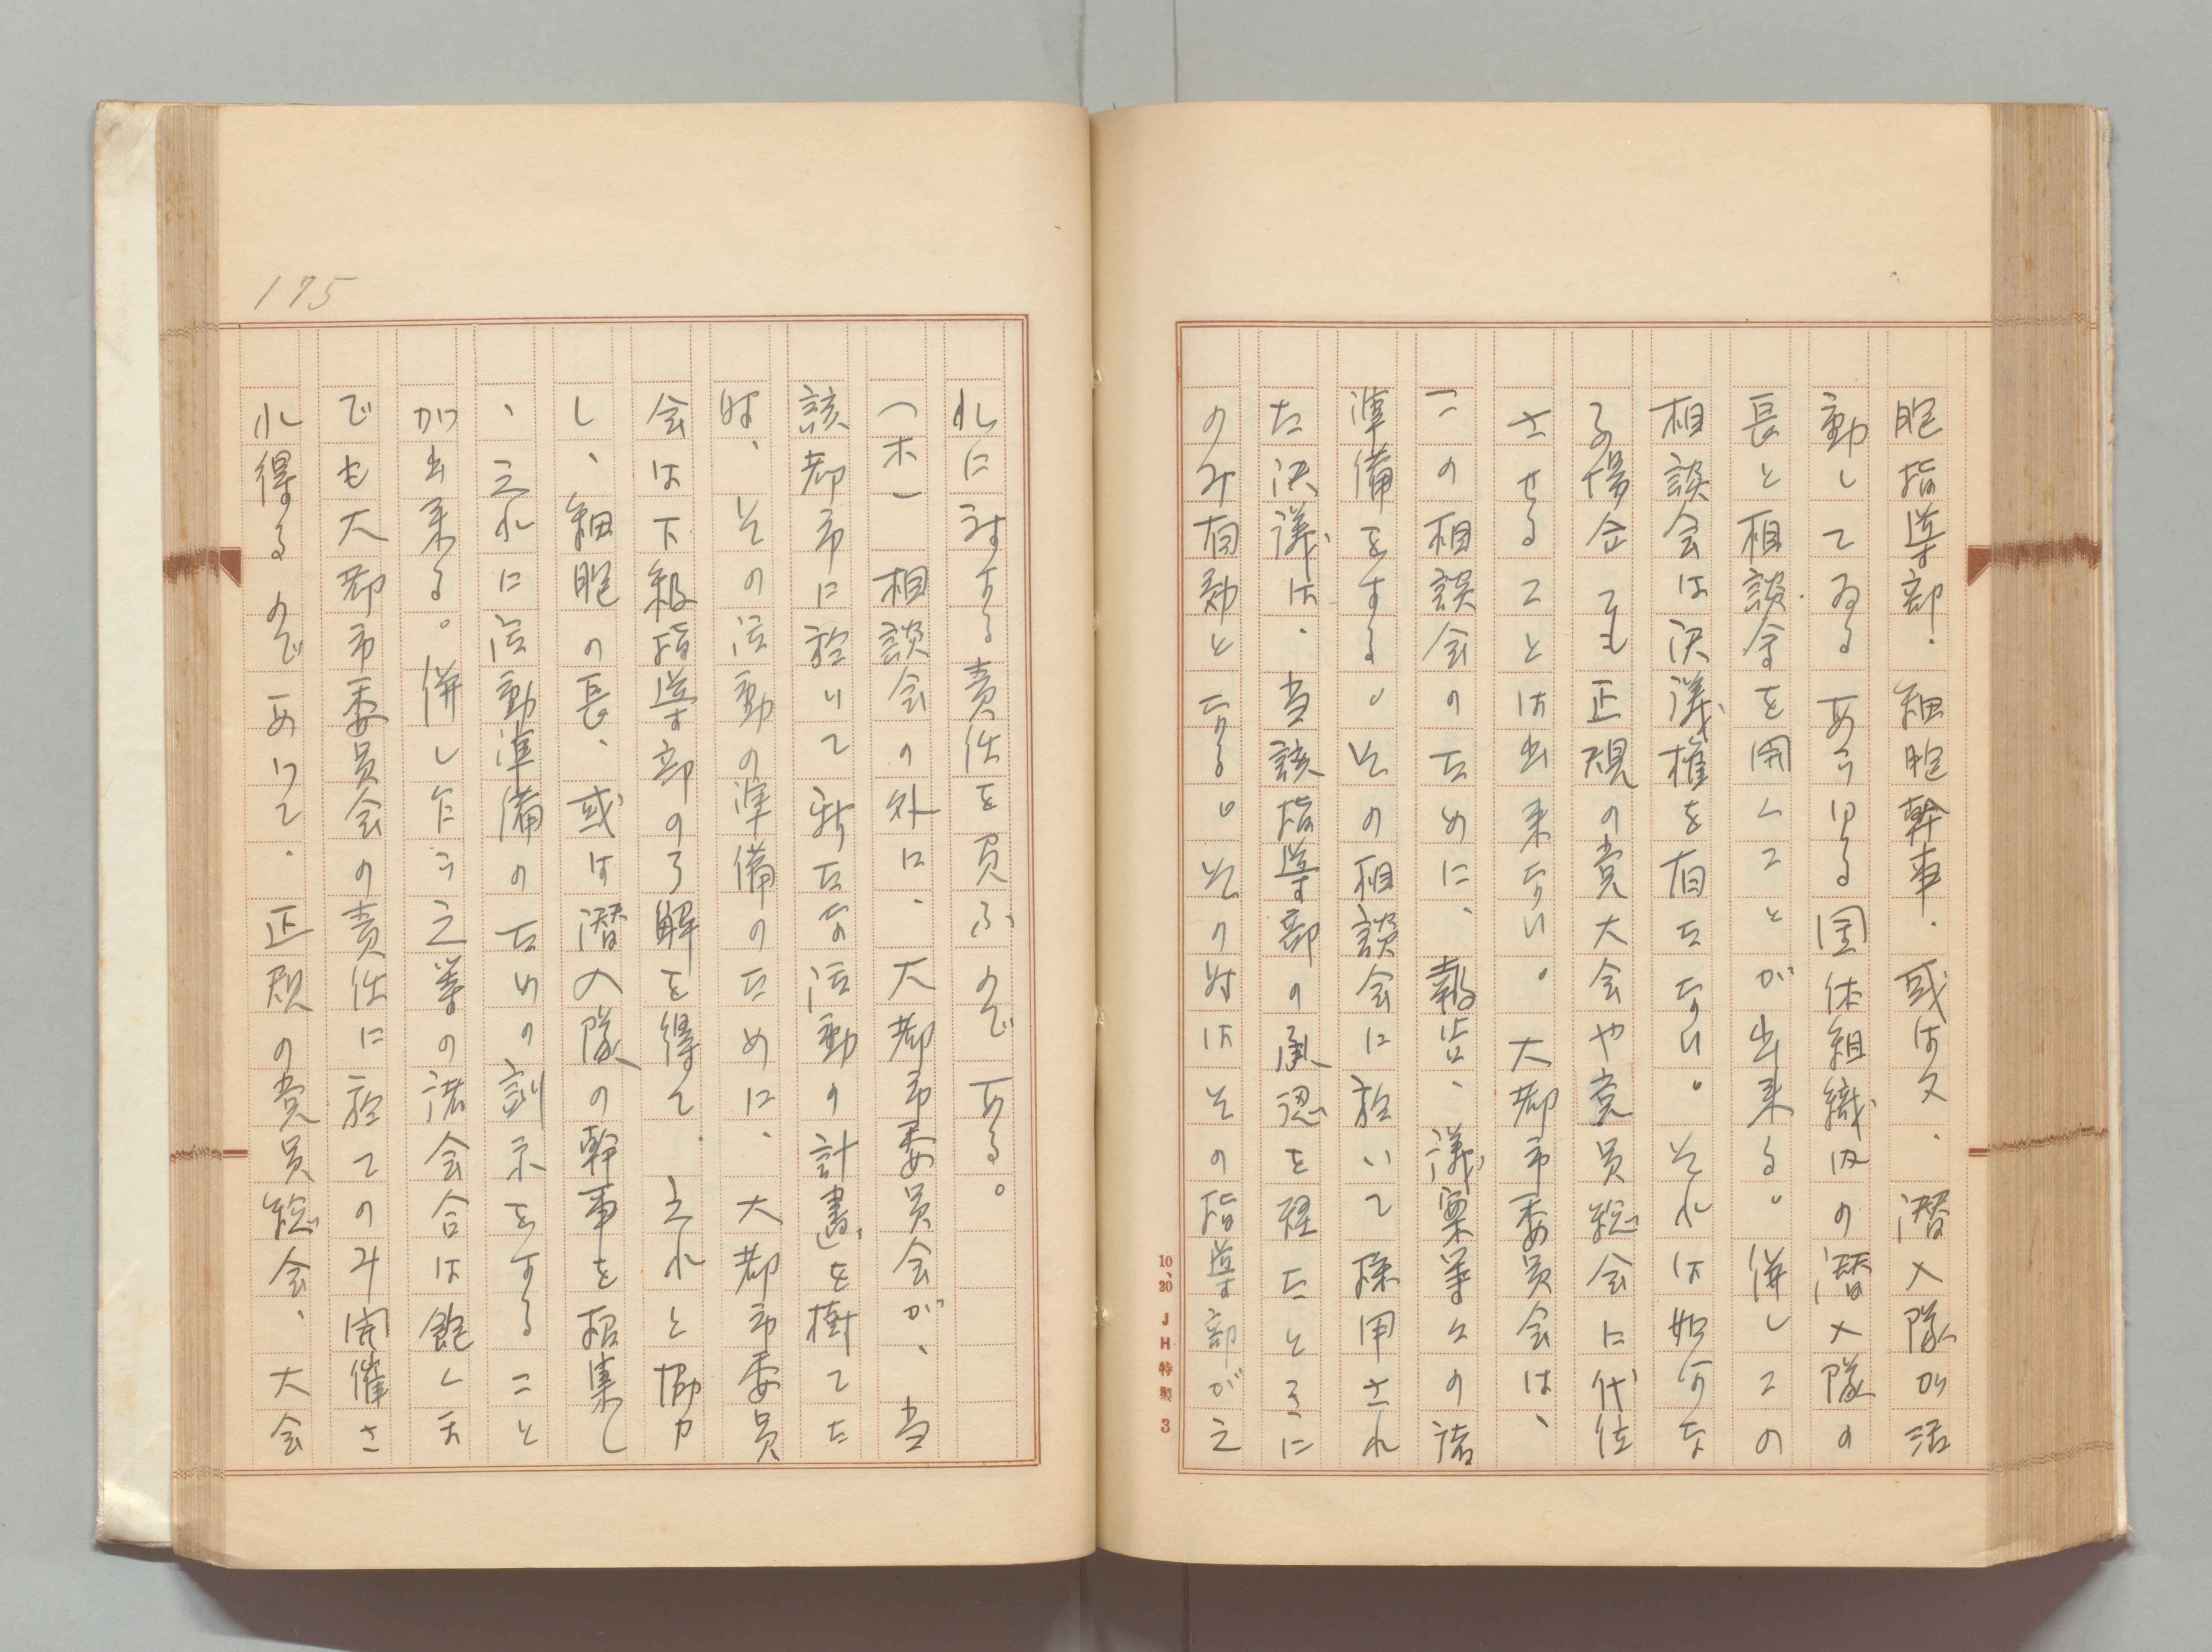 胞指導部、細胞幹事、或は又、潜入隊が活
動してゐるあらゆる団体組織内の潜入隊の
長と相談会を開くことが出来る。併しこの
相談会は決議権を有たない。それは如何な
る場合でも正規の党大会や党員総会に代位
させることは出来ない。大都市委員会は、
この相談会のために、報告、議案等々の諸
準備をする。その相談会に於いて採用され
た決議は、当該指導部の承認を経たときに
のみ有効となる。その時はその指導部が之
10、20 JH特製 3
175
れに対する責任を負ふのである。
(ホ)相談会の外に、大都市委員会が、当
該都市に於いて新たな活動の計画を樹てた
時、その活動の準備のために、大都市委員
会は下級指導部の了解を得て、之れと協力
し、細胞の長、或は潜入隊の幹事を招集し
、之れに活動準備のための訓示をすること
が出来る。併し乍ら之等の諸会合は飽くま
でも大都市委員会の責任に於てのみ開催さ
れ得るのであつて、正規の党員総会、大会